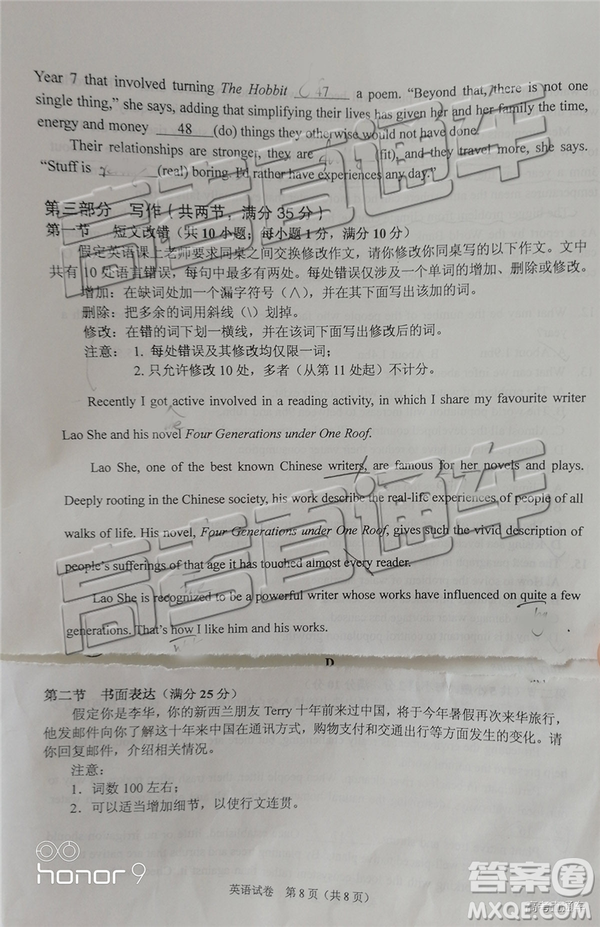 Year 7 that involved turning The Hobbit 47 a poem. "Beyond that, there is not one
single thing," she says, adding that simplifying their lives has given her and her family the time,
energy and money 48 (do) things they otherwise would not have done.
Their relationships are stronger, they are (fit), and they travel more, she says.
"Stuff is (real) boring. I'd rather have experiences any day."
第三部分 写作（共两节，满分 35 分）
第一节 短文改错（共 10 小题；每小题 1 分，满分 10 分）
假定英语课上老师要求同桌之间交换修改作文，请你修改你同桌写的以下作文。文中
共有 10 处语言错误，每句中最多有两处。每处错误仅涉及一个单词的增加、删除或修改。
增加：在缺词处加一个漏字符号（∧），并在其下面写出该加的词。
删除：把多余的词用斜线（\）划掉。
修改：在错的词下划一横线，并在该词下面写出修改后的词。
注意： 1. 每处错误及其修改均仅限一词；
2. 只允许修改 10 处，多者（从第 11 处起）不计分。
Recently I got active involved in a reading activity, in which I share my favourite writer
Lao She and his novel Four Generations under One Roof.
Lao She, one of the best known Chinese writers, are famous for her novels and plays.
Deeply rooting in the Chinese society, his work describe the real-life experiences of people of all
walks of life. His novel, Four Generations under One Roof, gives such the vivid description of
people's sufferings of that age it has touched almost every reader.
Lao She is recognized to be a powerful writer whose works have influenced on quite a few
generations. That's how I like him and his works.
D
第二节 书面表达（满分 25 分）
假定你是李华，你的新西兰朋友 Terry 十年前来过中国，将于今年暑假再次来华旅行，
他发邮件向你了解这十年来中国在通讯方式，购物支付和交通出行等方面发生的变化。请
你回复邮件，介绍相关情况。
注意：
1．词数 100 左右；
2．可以适当增加细节，以使行文连贯。
honor 9
英语试卷 第 8 页（共 8 页）
答案圈
MXQE.COM
高考直通车
高考直通车
高考直通车